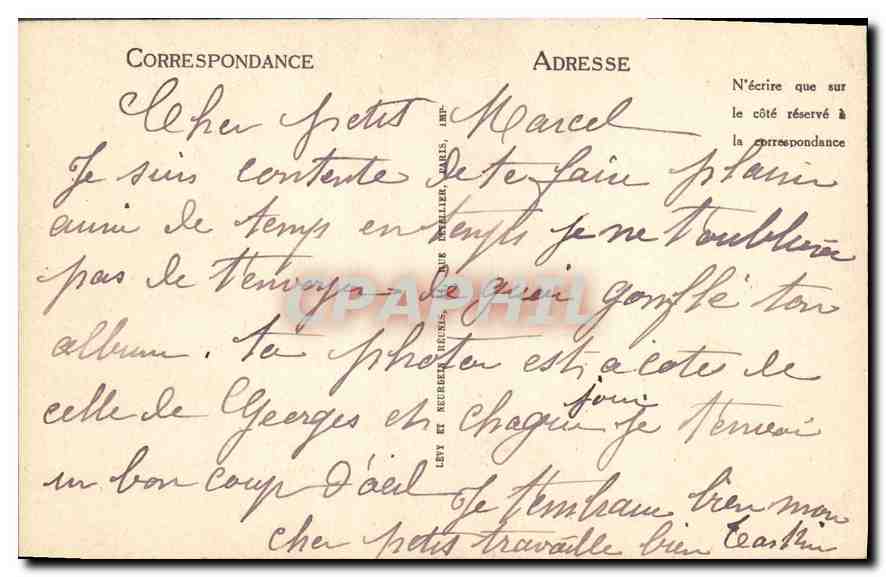 CORRESPONDANCE
ADRESSE
N'écrire que sur
le côté réservé à
la correspondance
LÉVY ET NEURDEIN RÉUNIS, RUE LETELLIER, PARIS, IMP.
CPAPHIL
Cher petit Marcel
Je suis contente de te faire plaisir
aussi de temps en temps je ne t'oublierai
pas de t'envoyer de quoi gonflé ton
album. ta photo est a coté de
celle de Georges et chaque jour je t'envoi
un bon coup d'oeil Je t'embrasse bien mon
cher petit travaille bien